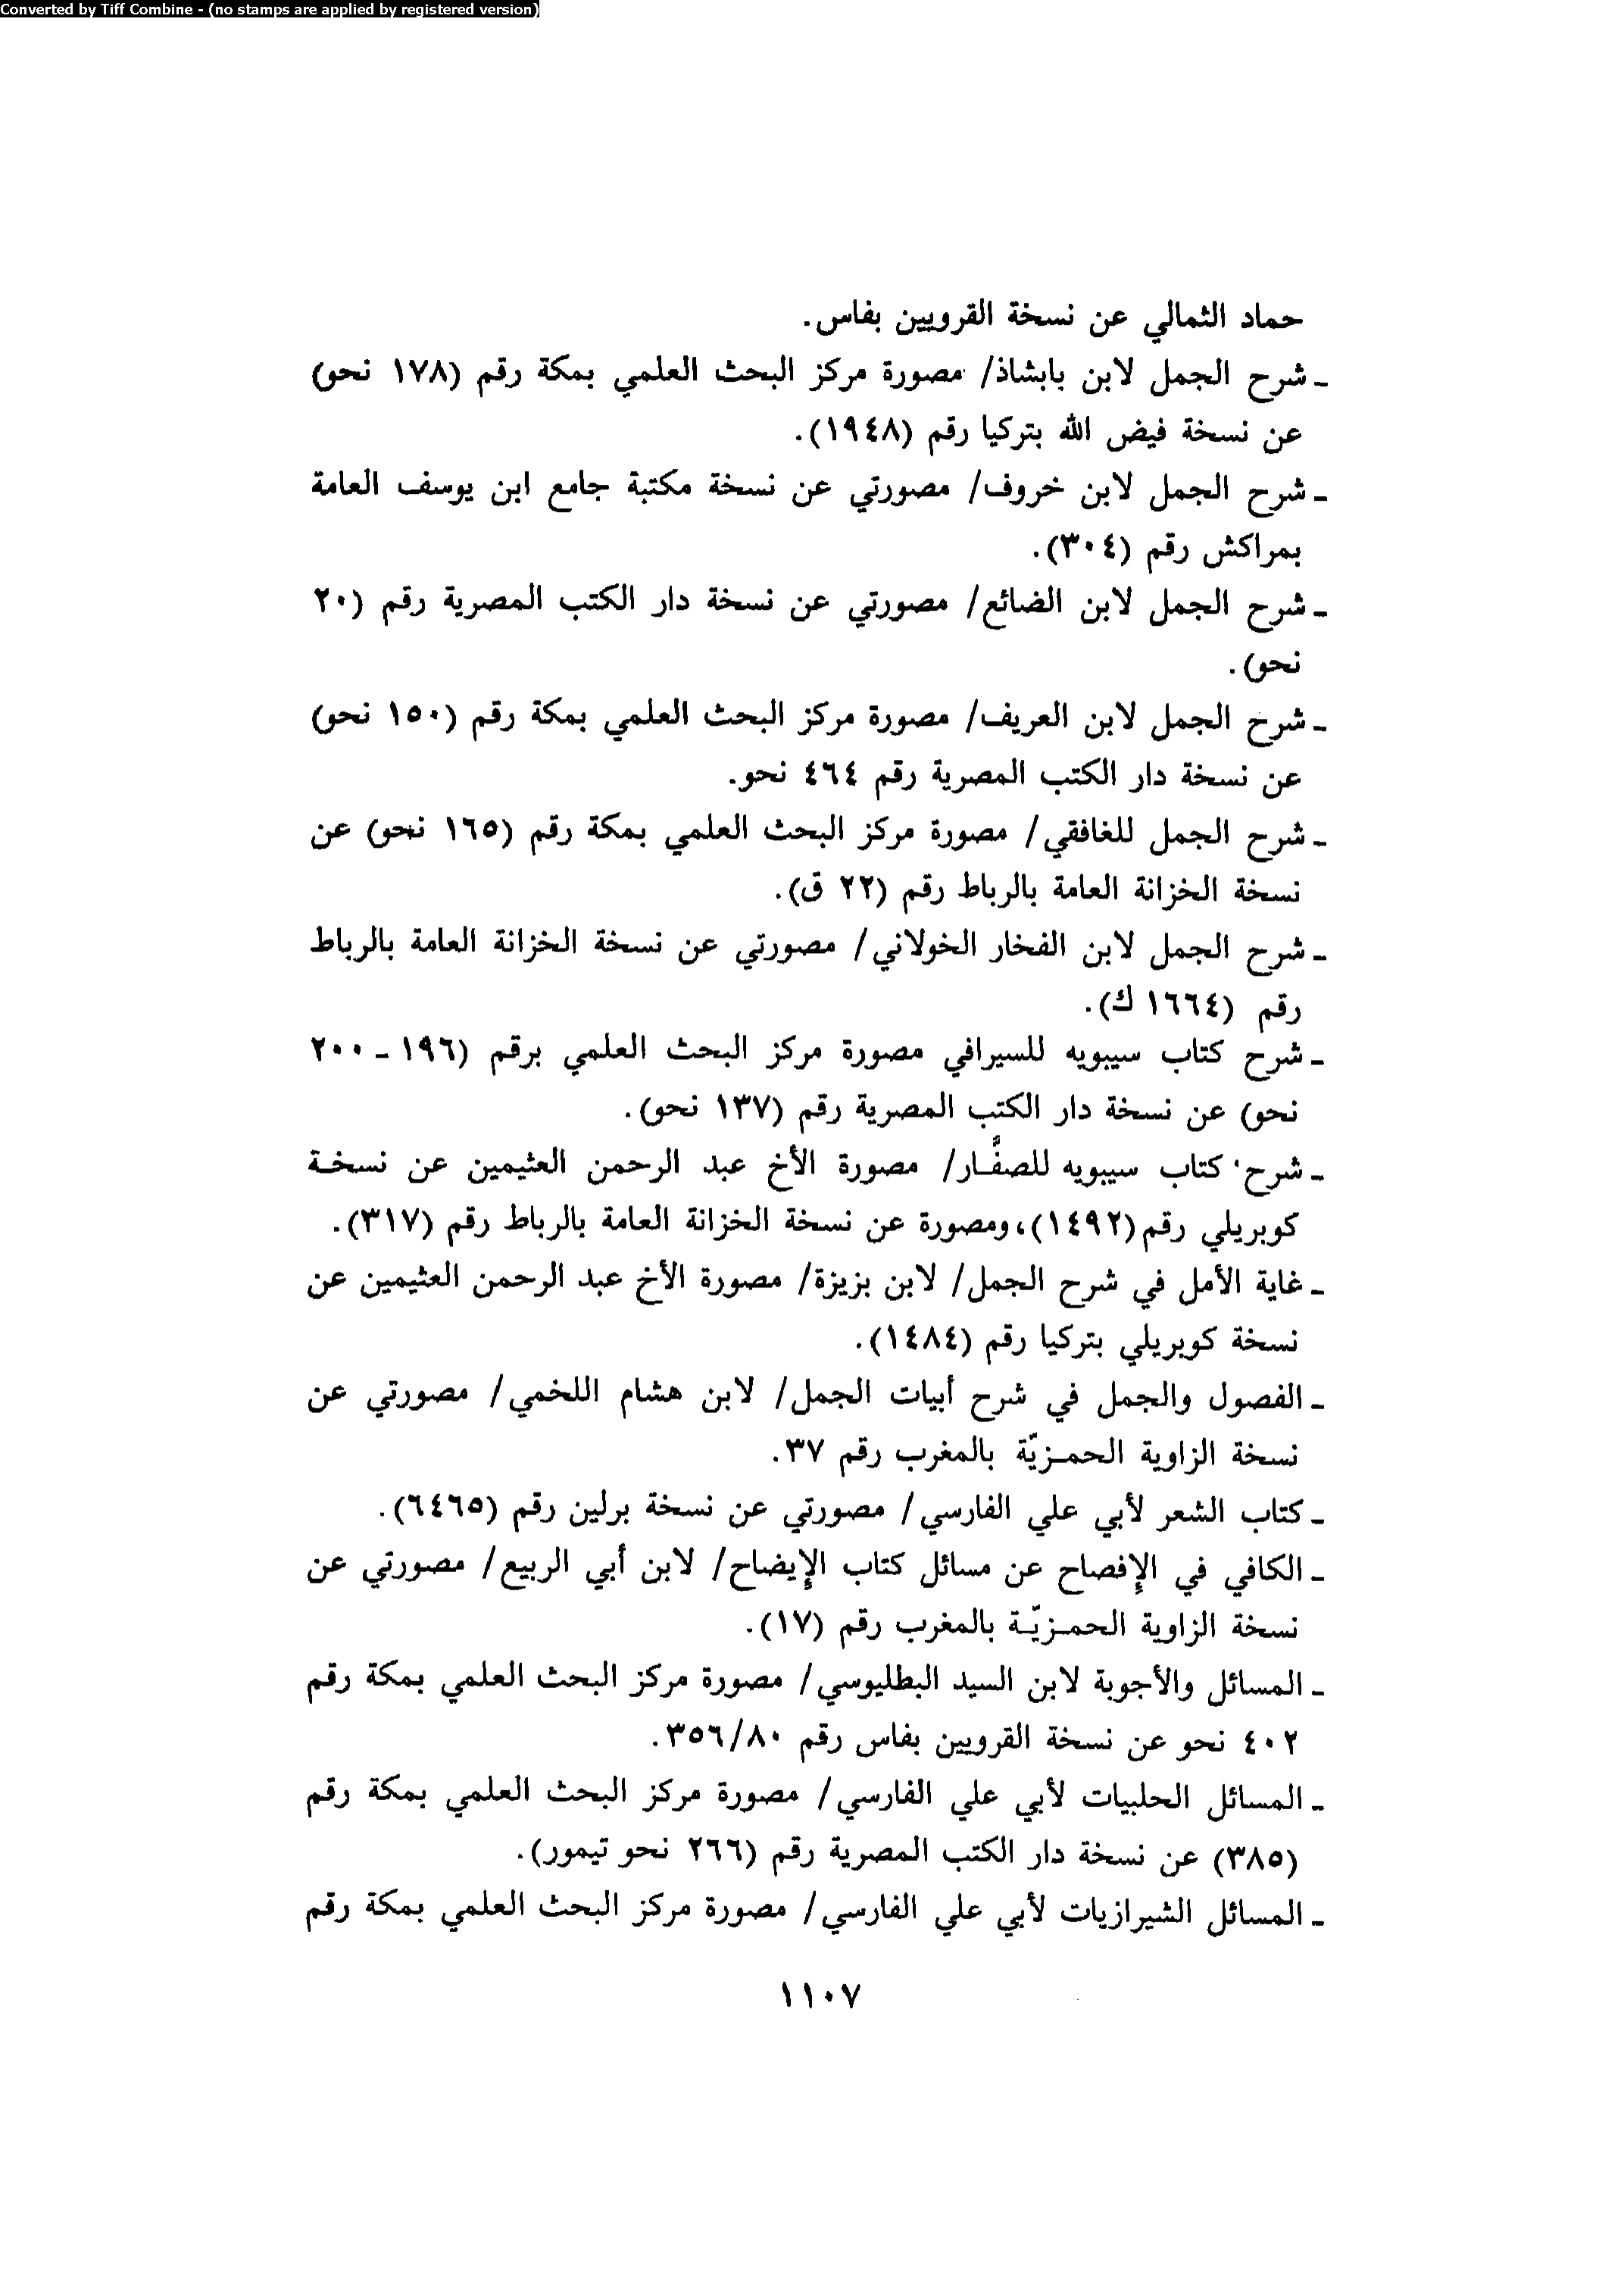 Converted by Tiff Combine - (no stamps are applied by registered version)
حماد الثمالي عن نسخة القرويين بفاس.
ـ شرح الجمل لابن بابشاذ/ مصورة مركز البحث العلمي بمكة رقم (١٧٨ نحو)
عن نسخة فيض الله بتركيا رقم (١٩٤٨).
ـ شرح الجمل لابن خروف/ مصورتي عن نسخة مكتبة جامع ابن يوسف العامة
بمراكش رقم (٣٠٤).
ـ شرح الجمل لابن الضائع/ مصورتي عن نسخة دار الكتب المصرية رقم (٢٠
نحو).
ـ شرح الجمل لابن العريف/ مصورة مركز البحث العلمي بمكة رقم (١٥٠ نحو)
عن نسخة دار الكتب المصرية رقم ٤٦٤ نحو.
ـ شرح الجمل للغافقي/ مصورة مركز البحث العلمي بمكة رقم (١٦٥ نحو) عن
نسخة الخزانة العامة بالرباط رقم (٢٢ ق).
ـ شرح الجمل لابن الفخار الخولاني/ مصورتي عن نسخة الخزانة العامة بالرباط
رقم (١٦٦٤ ك).
ـ شرح كتاب سيبويه للسيرافي مصورة مركز البحث العلمي برقم (١٩٦ ـ ٢٠٠
نحو) عن نسخة دار الكتب المصرية رقم (١٣٧ نحو).
ـ شرح كتاب سيبويه للصفَّار/ مصورة الأخ عبد الرحمن العثيمين عن نسخة
كوبريلي رقم (١٤٩٢)، ومصورة عن نسخة الخزانة العامة بالرباط رقم (٣١٧).
ـ غاية الأمل في شرح الجمل/ لابن بزيزة/ مصورة الأخ عبد الرحمن العثيمين عن
نسخة كوبريلي بتركيا رقم (١٤٨٤).
ـ الفصول والجمل في شرح أبيات الجمل/ لابن هشام اللخمي/ مصورتي عن
نسخة الزاوية الحمزيّة بالمغرب رقم ٣٧.
ـ كتاب الشعر لأبي علي الفارسي/ مصورتي عن نسخة برلين رقم (٦٤٦٥).
ـ الكافي في الإفصاح عن مسائل كتاب الإيضاح/ لابن أبي الربيع/ مصورتي عن
نسخة الزاوية الحمزيّة بالمغرب رقم (١٧).
ـ المسائل والأجوبة لابن السيد البطليوسي/ مصورة مركز البحث العلمي بمكة رقم
٤٠٢ نحو عن نسخة القرويين بفاس رقم ٣٥٦/٨٠.
ـ المسائل الحلبيات لأبي علي الفارسي/ مصورة مركز البحث العلمي بمكة رقم
(٣٨٥) عن نسخة دار الكتب المصرية رقم (٢٦٦ نحو تيمور).
ـ المسائل الشيرازيات لأبي علي الفارسي/ مصورة مركز البحث العلمي بمكة رقم
١١٠٧